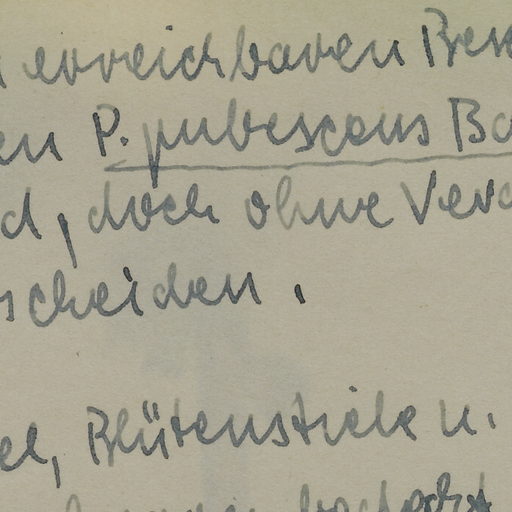 erreichbaren Bes
en P. pubescens Ba
d, doch ohne Ver
scheiden.
el, Blütenstiele u.